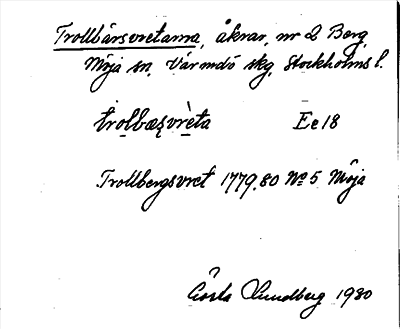 Trollbärsvretarna, åkrar, nr 2 Berg,
Möja sn, Värmdö skg, Stockholms l.
trolbæʂvrèta Ee 18
Trollbergsvret 1779,80 No 5 Möja
Gösta Sundberg 1930